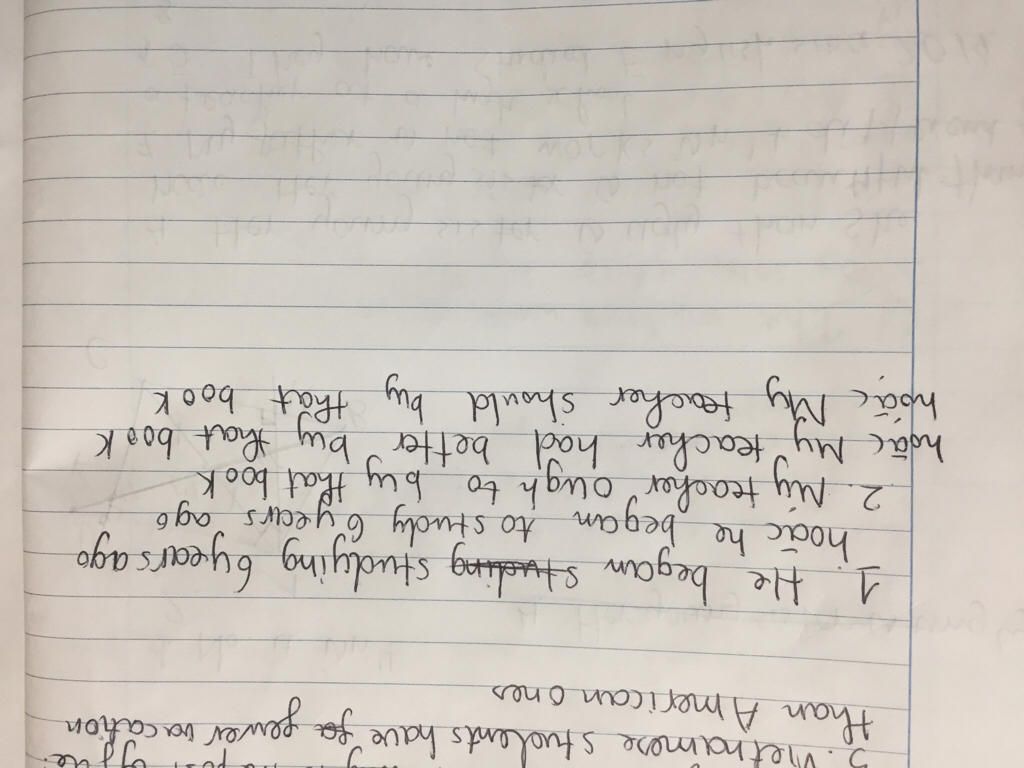 post office.
3. Vietnamese students have fewer vacation
than American ones
1. He began studying 6 years ago
hoặc he began to study 6 years ago
2. My teacher ough to buy that book
hoặc My teacher had better buy that book
hoặc My teacher should buy that book